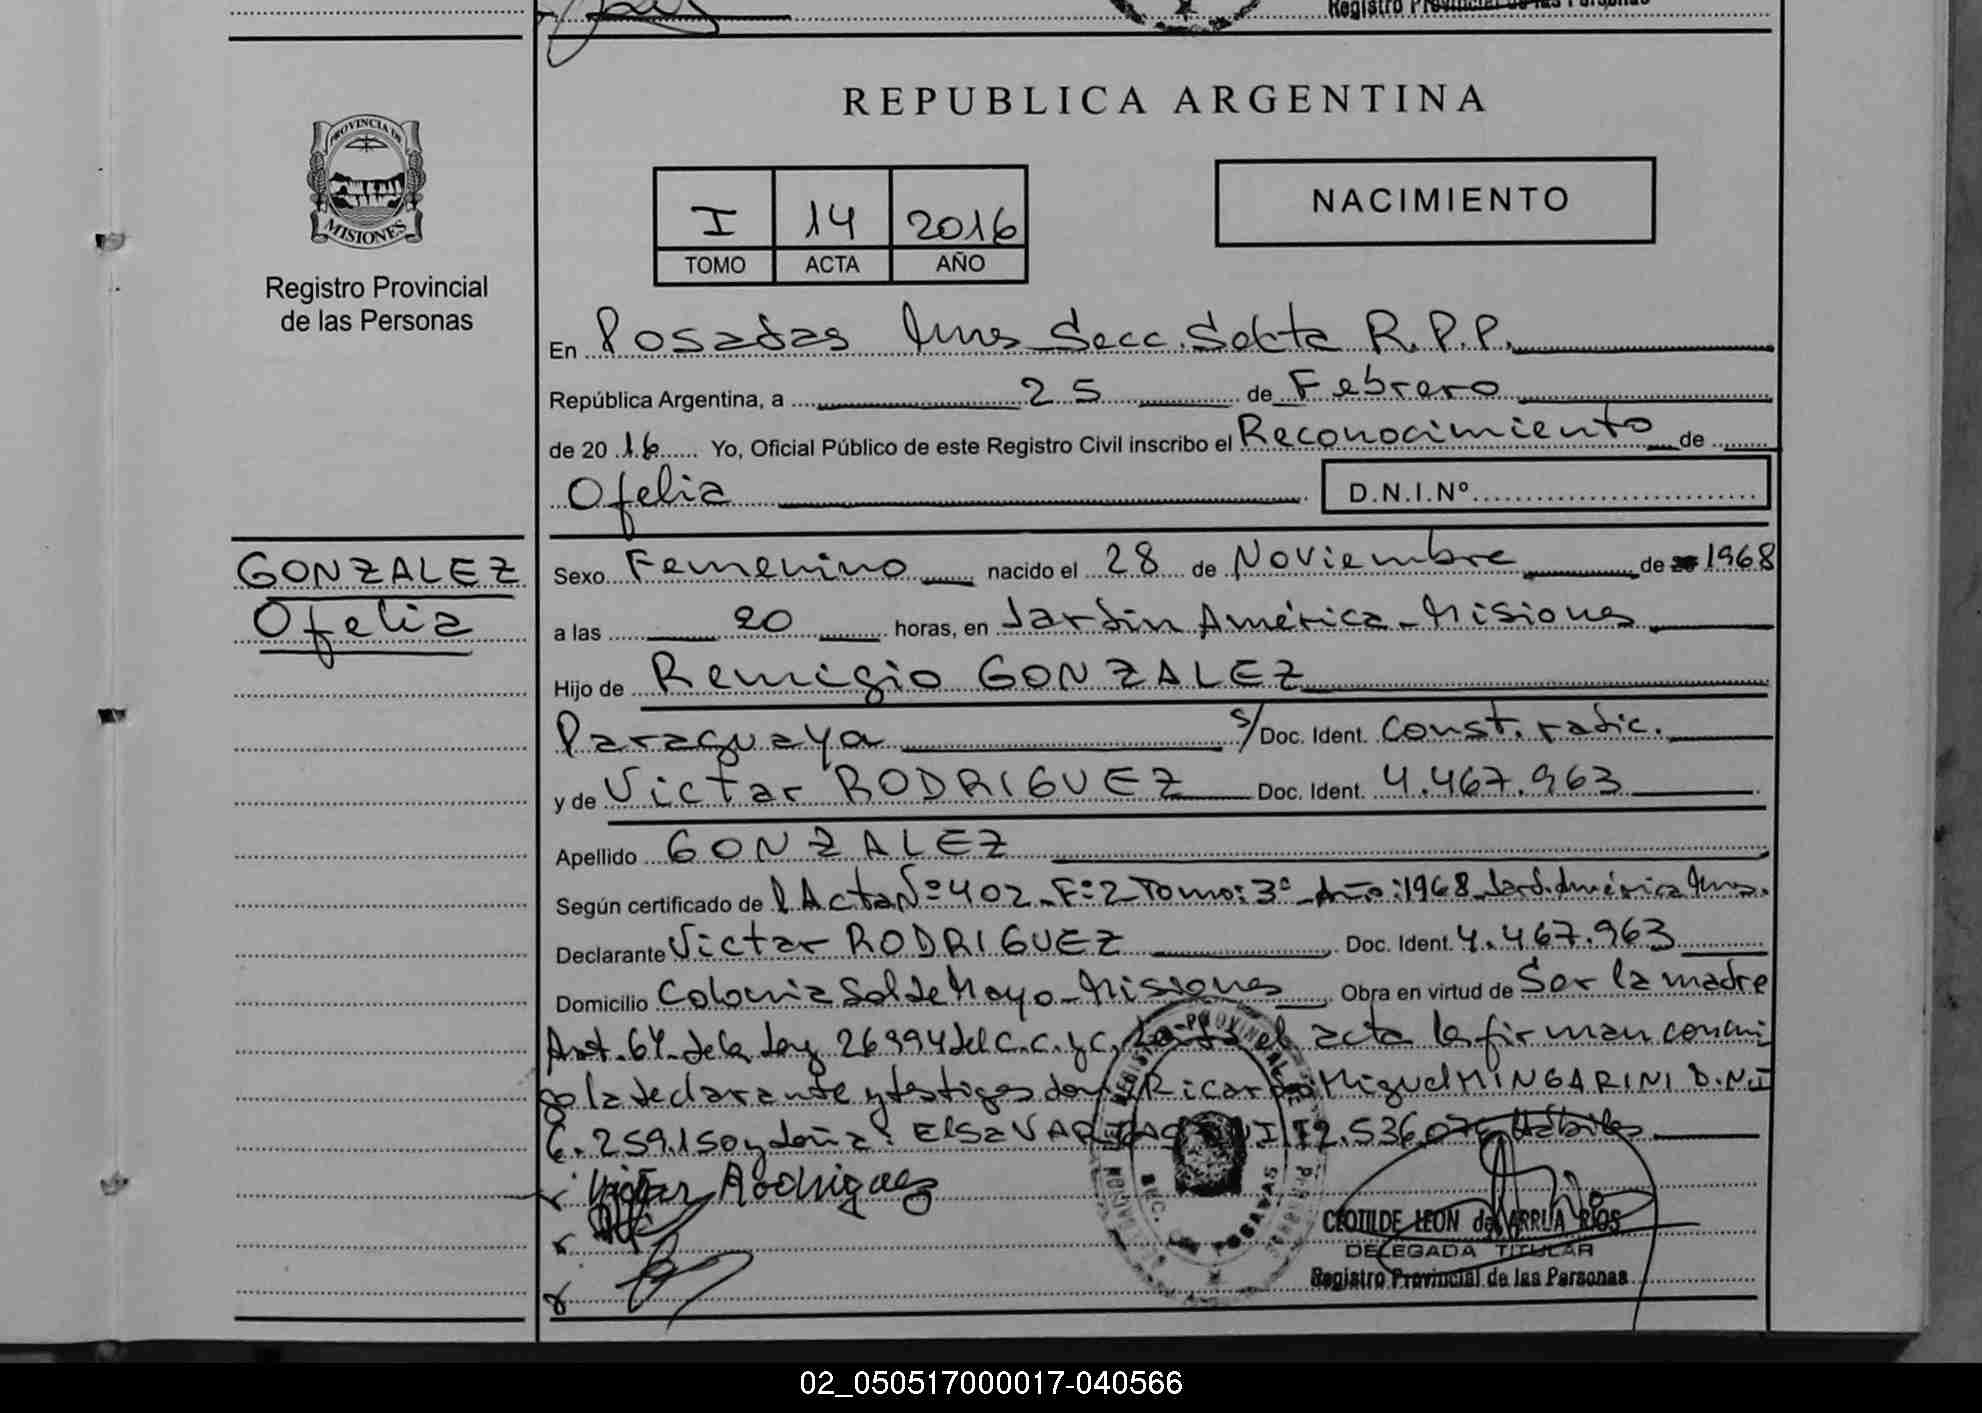 Registro Provincial de las Personas
REPUBLICA ARGENTINA
PROVINCIA DE
MISIONES
Registro Provincial
de las Personas
I 14 2016
TOMO ACTA AÑO
NACIMIENTO
En Posadas Mnes Secc. Sexta R.P.P.
República Argentina, a 25 de Febrero
de 2016 Yo, Oficial Público de este Registro Civil inscribo el Reconocimiento de
Ofelia D.N.I.Nº
GONZALEZ
Ofelia
Sexo Femenino nacido el 28 de Noviembre de 1968
a las 20 horas, en Jardin América - Misiones
Hijo de Remigio GONZALEZ
Paraguaya s/ Doc. Ident. Const. radic.
y de Victar RODRIGUEZ Doc. Ident. 4.467.963
Apellido GONZALEZ
Según certificado de Acta Nº 402 - Fº 2 Tomo: 3º - Año: 1968 Jard. América Mnes.
Declarante Victar RODRIGUEZ Doc. Ident. 4.467.963
Domicilio Colonia Sol de Mayo - Misiones Obra en virtud de Ser la madre
Art. 64 de la Ley 26994 del C.C. y C. el acta la firman conmi
go la declarante y testigos don Ricardo Miguel MINGARINI D.N.I
6.259.150 y doña: Elsa Hábiles
Victar Rodriguez
POSADAS
CLOTILDE LEON de ARRUA RIOS
DELEGADA TITULAR
Registro Provincial de las Personas
02_050517000017-040566